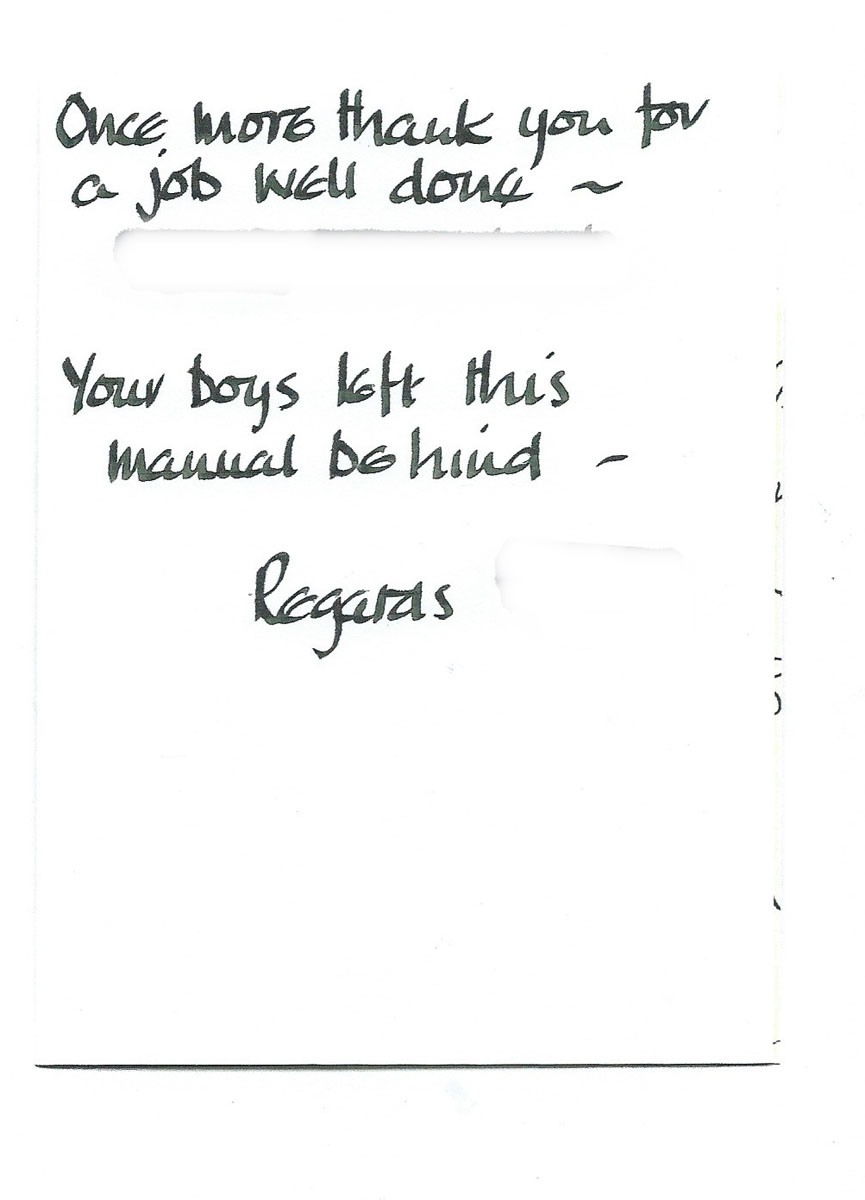 Once more thank you for
a job well done ~
Your boys left this
manual behind -
Regards